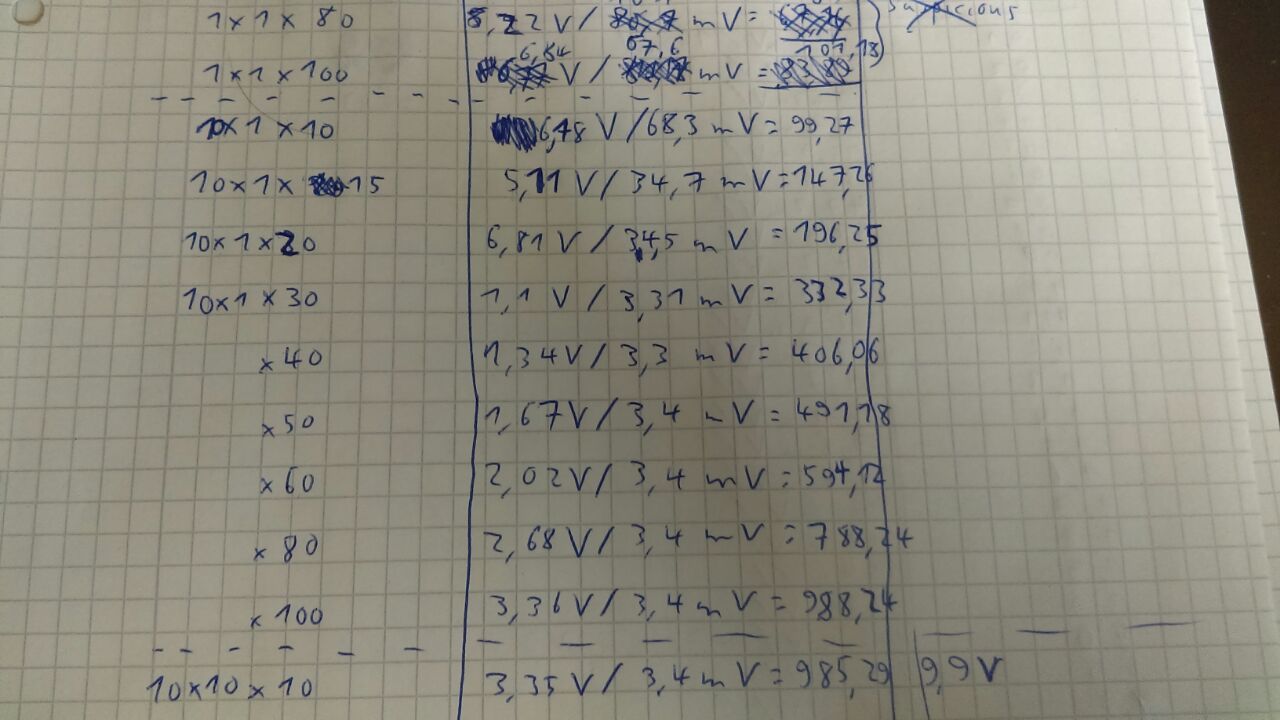 1 x 1 x 80 5,22 V / mV = suspicious
1 x 1 x 100 6,84 V / 67,6 mV = 101,18
10 x 1 x 10 6,78 V / 68,3 mV = 99,27
10 x 1 x 15 5,11 V / 34,7 mV = 147,26
10 x 1 x 20 6,81 V / 34,5 mV = 196,25
10 x 1 x 30 1,1 V / 3,31 mV = 332,33
x 40 1,34 V / 3,3 mV = 406,06
x 50 1,67 V / 3,4 mV = 491,18
x 60 2,02 V / 3,4 mV = 594,12
x 80 2,68 V / 3,4 mV = 788,24
x 100 3,36 V / 3,4 mV = 988,24
10 x 10 x 10 3,35 V / 3,4 mV = 985,29 9,9 V